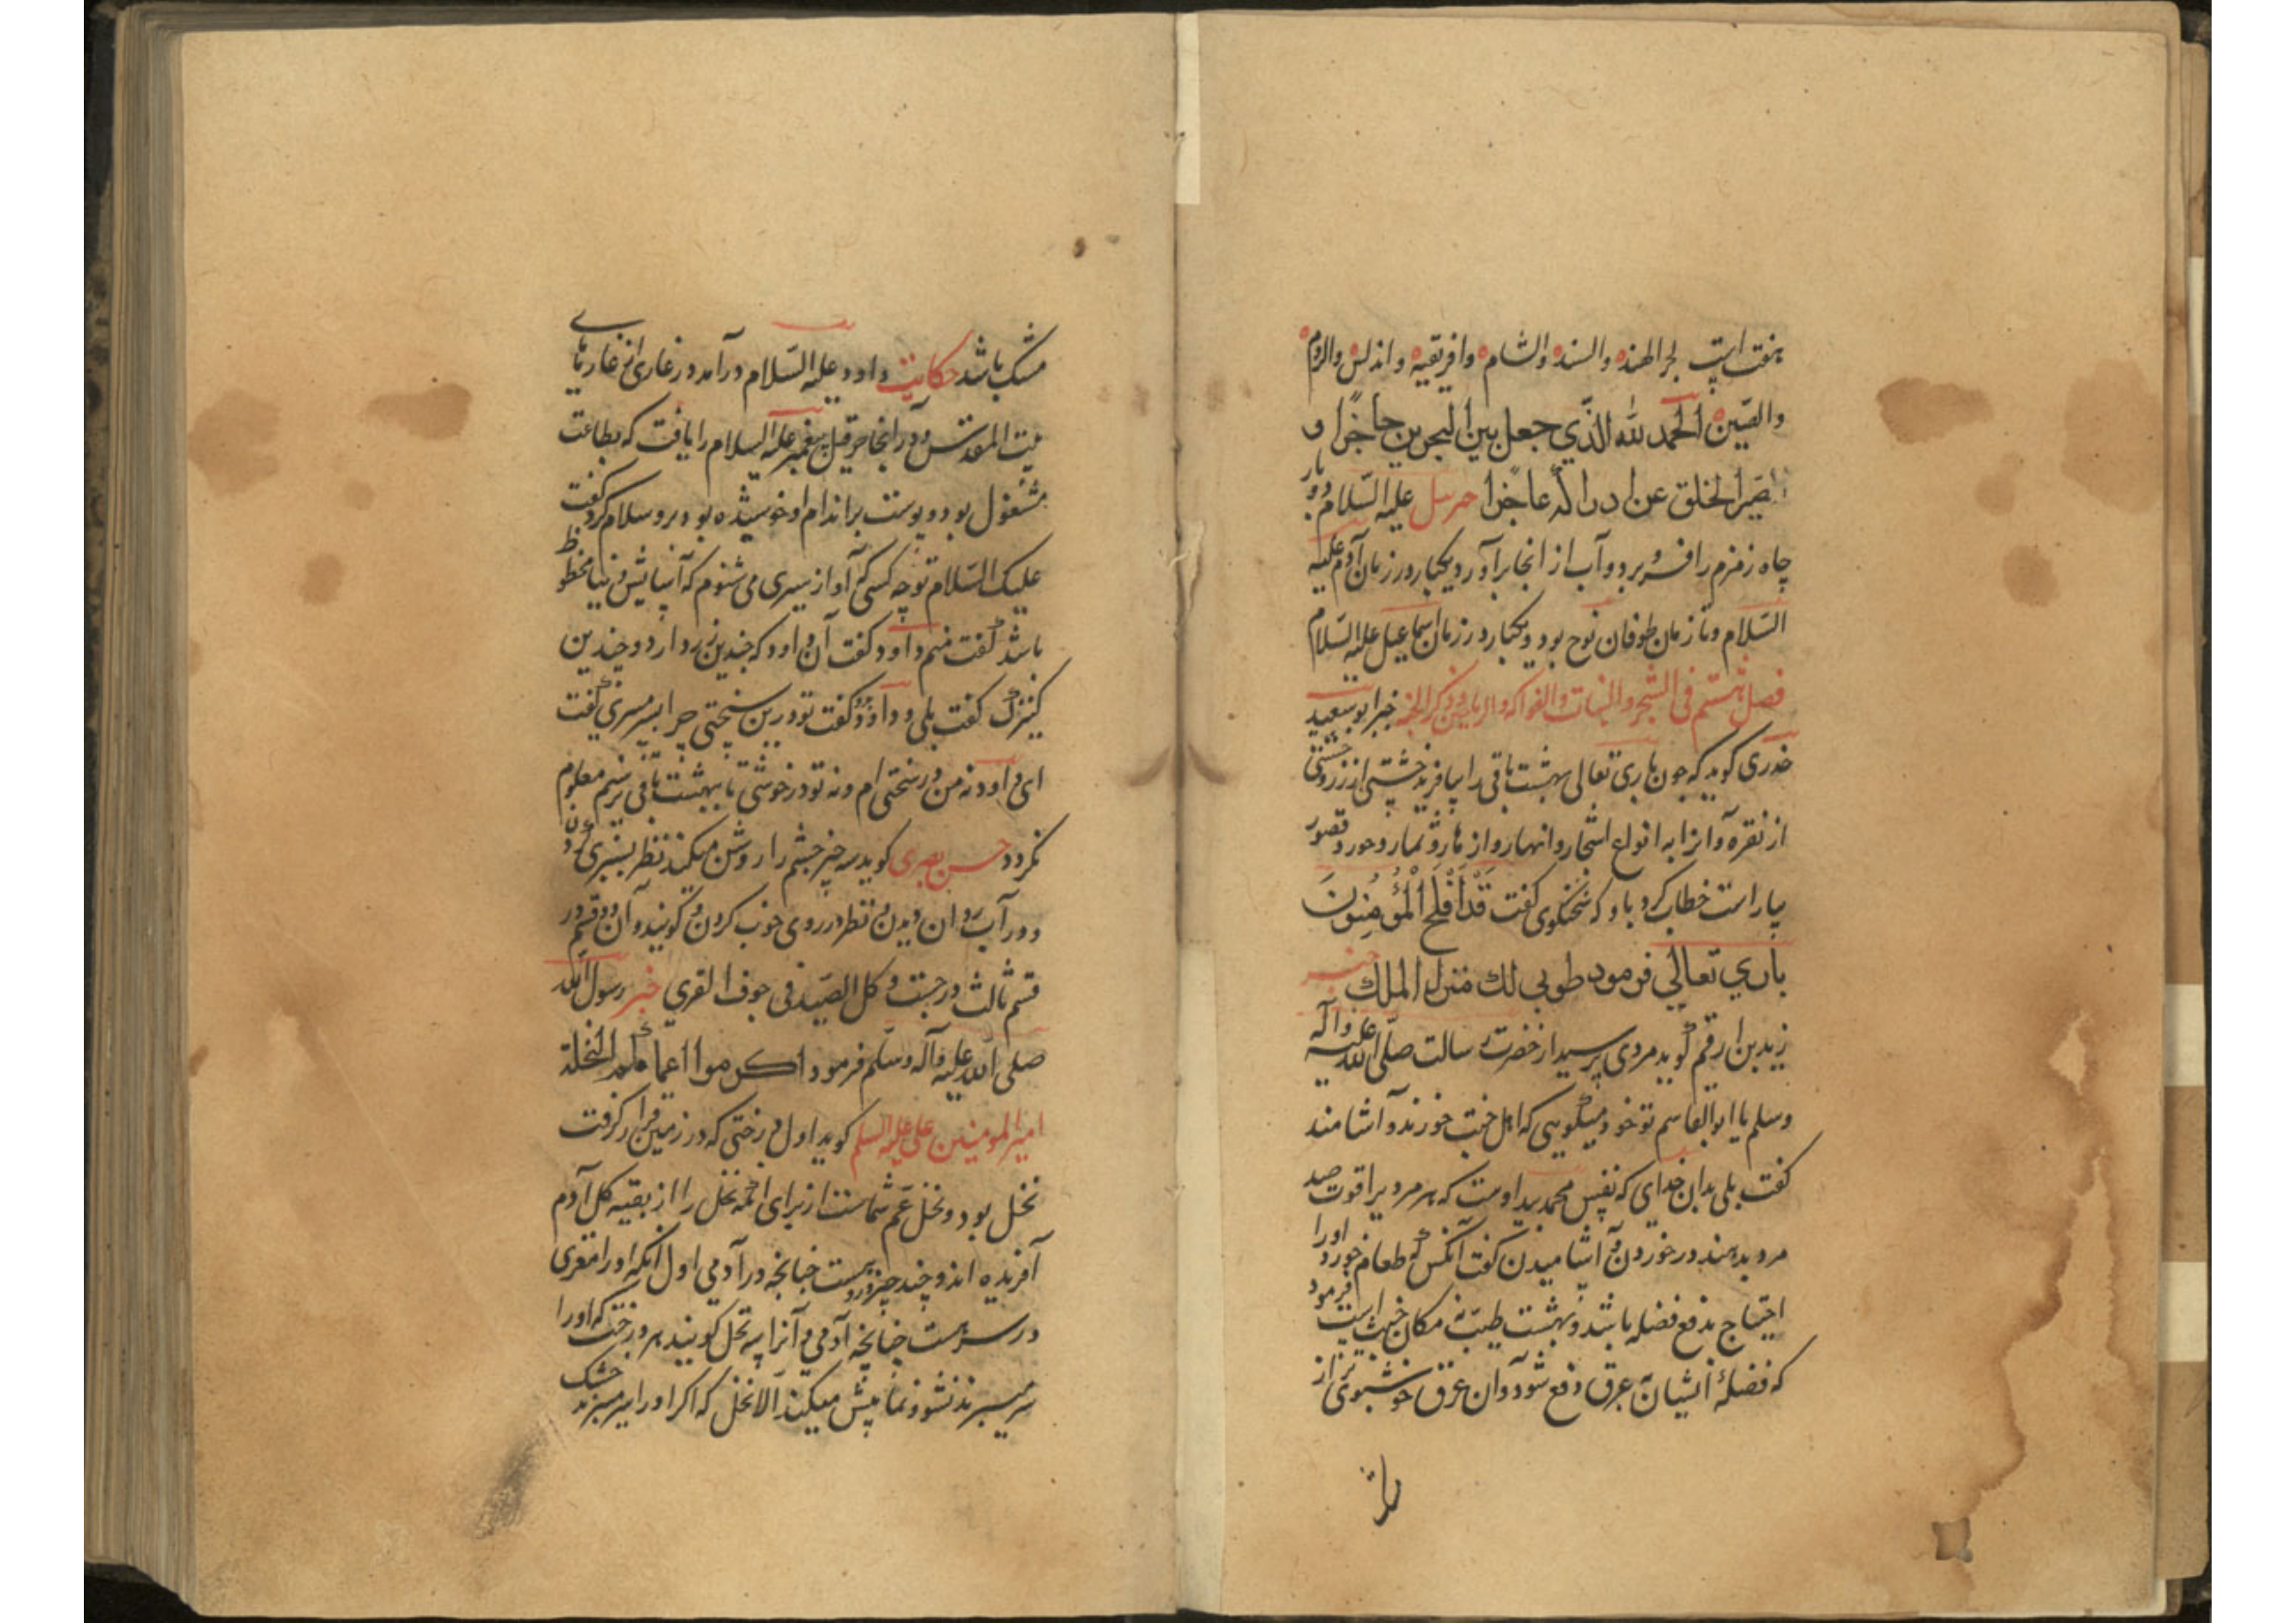 هفت است بحر الهند والسند والشام وافریقیه واندلس والروم
والصین الحمد لله الذی جعل بین البحرین حاجزا و
صیر الخلق عن ادراکه عاجزا جبرئیل علیه السلام دوبار
چاه زمزم را فرو برد و آب از آنجا برآورد یکبار در زمان آدم علیه
السلام و تا زمان طوفان نوح بود و یکبار در زمان اسماعیل علیه السلام
فصل هشتم فی الشجر والنبات والفواکه والریاحین وذکر الجنة خبر ابو سعید
خدری کوید که چون باری تعالی بهشت باقی را بیافرید خشتی از زر و خشتی
از نقره و آنرا به انواع اشجار و انهار و ازهار و ثمار و حور و قصور
بیاراست خطاب کرد باو که سخنکوی کفت قَدْ أَفْلَحَ الْمُؤْمِنُونَ
باری تعالی فرمود طوبی لك منزل الملك خبر
زید بن ارقم کوید مردی پرسید از حضرت رسالت صلی الله علیه وآله
وسلم یا ابوالقاسم تو خود میکویی که اهل جنت خورند و آشامند
کفت بلی بدان خدای که نفس محمد بید اوست که هر مردیرا قوت صد
مرد بدهند در خوردن و آشامیدن کفت آنکس که طعام خورد اورا
احتیاج بدفع فضله باشد و بهشت طیبست نه مکان خبیث است فرمود
که فضلهٔ ایشان بعرق دفع شود و آن عرق خوشبوی تر از
مشک باشد حکایت داود علیه السلام درآمد در غاری از غارهای
بیت المقدس و در آنجا حزقیل پیغمبر علیه السلام را یافت که بطاعت
مشغول بود و پوست بر اندام او خوشیده بود برو سلام کرد کفت
علیك السلام تو چه کسی که آواز سیری می شنوم که آسایش دنیا محظوظ
باشد کفت منم داود کفت آن داود که چندین زن دارد و چندین
کنیزک کفت بلی و داود کفت تو درین سختی چرا بسر میبری کفت
ای داود نه من در سختی ام و نه تو در خوشی تا ببهشت باقی نرسیم معلوم
نکردد حسن بصری کوید سه چیز چشم را روشن میکند نظر بسبزی کردن
و در آب روان دیدن و نظر در روی خوب کردن و کویند آن دو قسم در
قسم ثالث درجست و کل الصید فی جوف الفری خبر رسول الله
صلی الله علیه وآله وسلم فرمود اکرموا اعماتکم النخلة
امیر المومنین علی علیه السلم کوید اول درختی که در زمین قرار کرفت
نخل بود و نخل عم شماست از برای آنکه نخل را از بقیه کل آدم
آفریده اند و چند چیز دروست چنانچه در آدمی اول آنکه اورا مغزی
در سرست چنانچه آدمی و آنرا پیه نخل کویند هر درخت که اورا
سر میبرند نشو و نما بیش میکند الا نخل که اکر اورا سر میبرند خشک